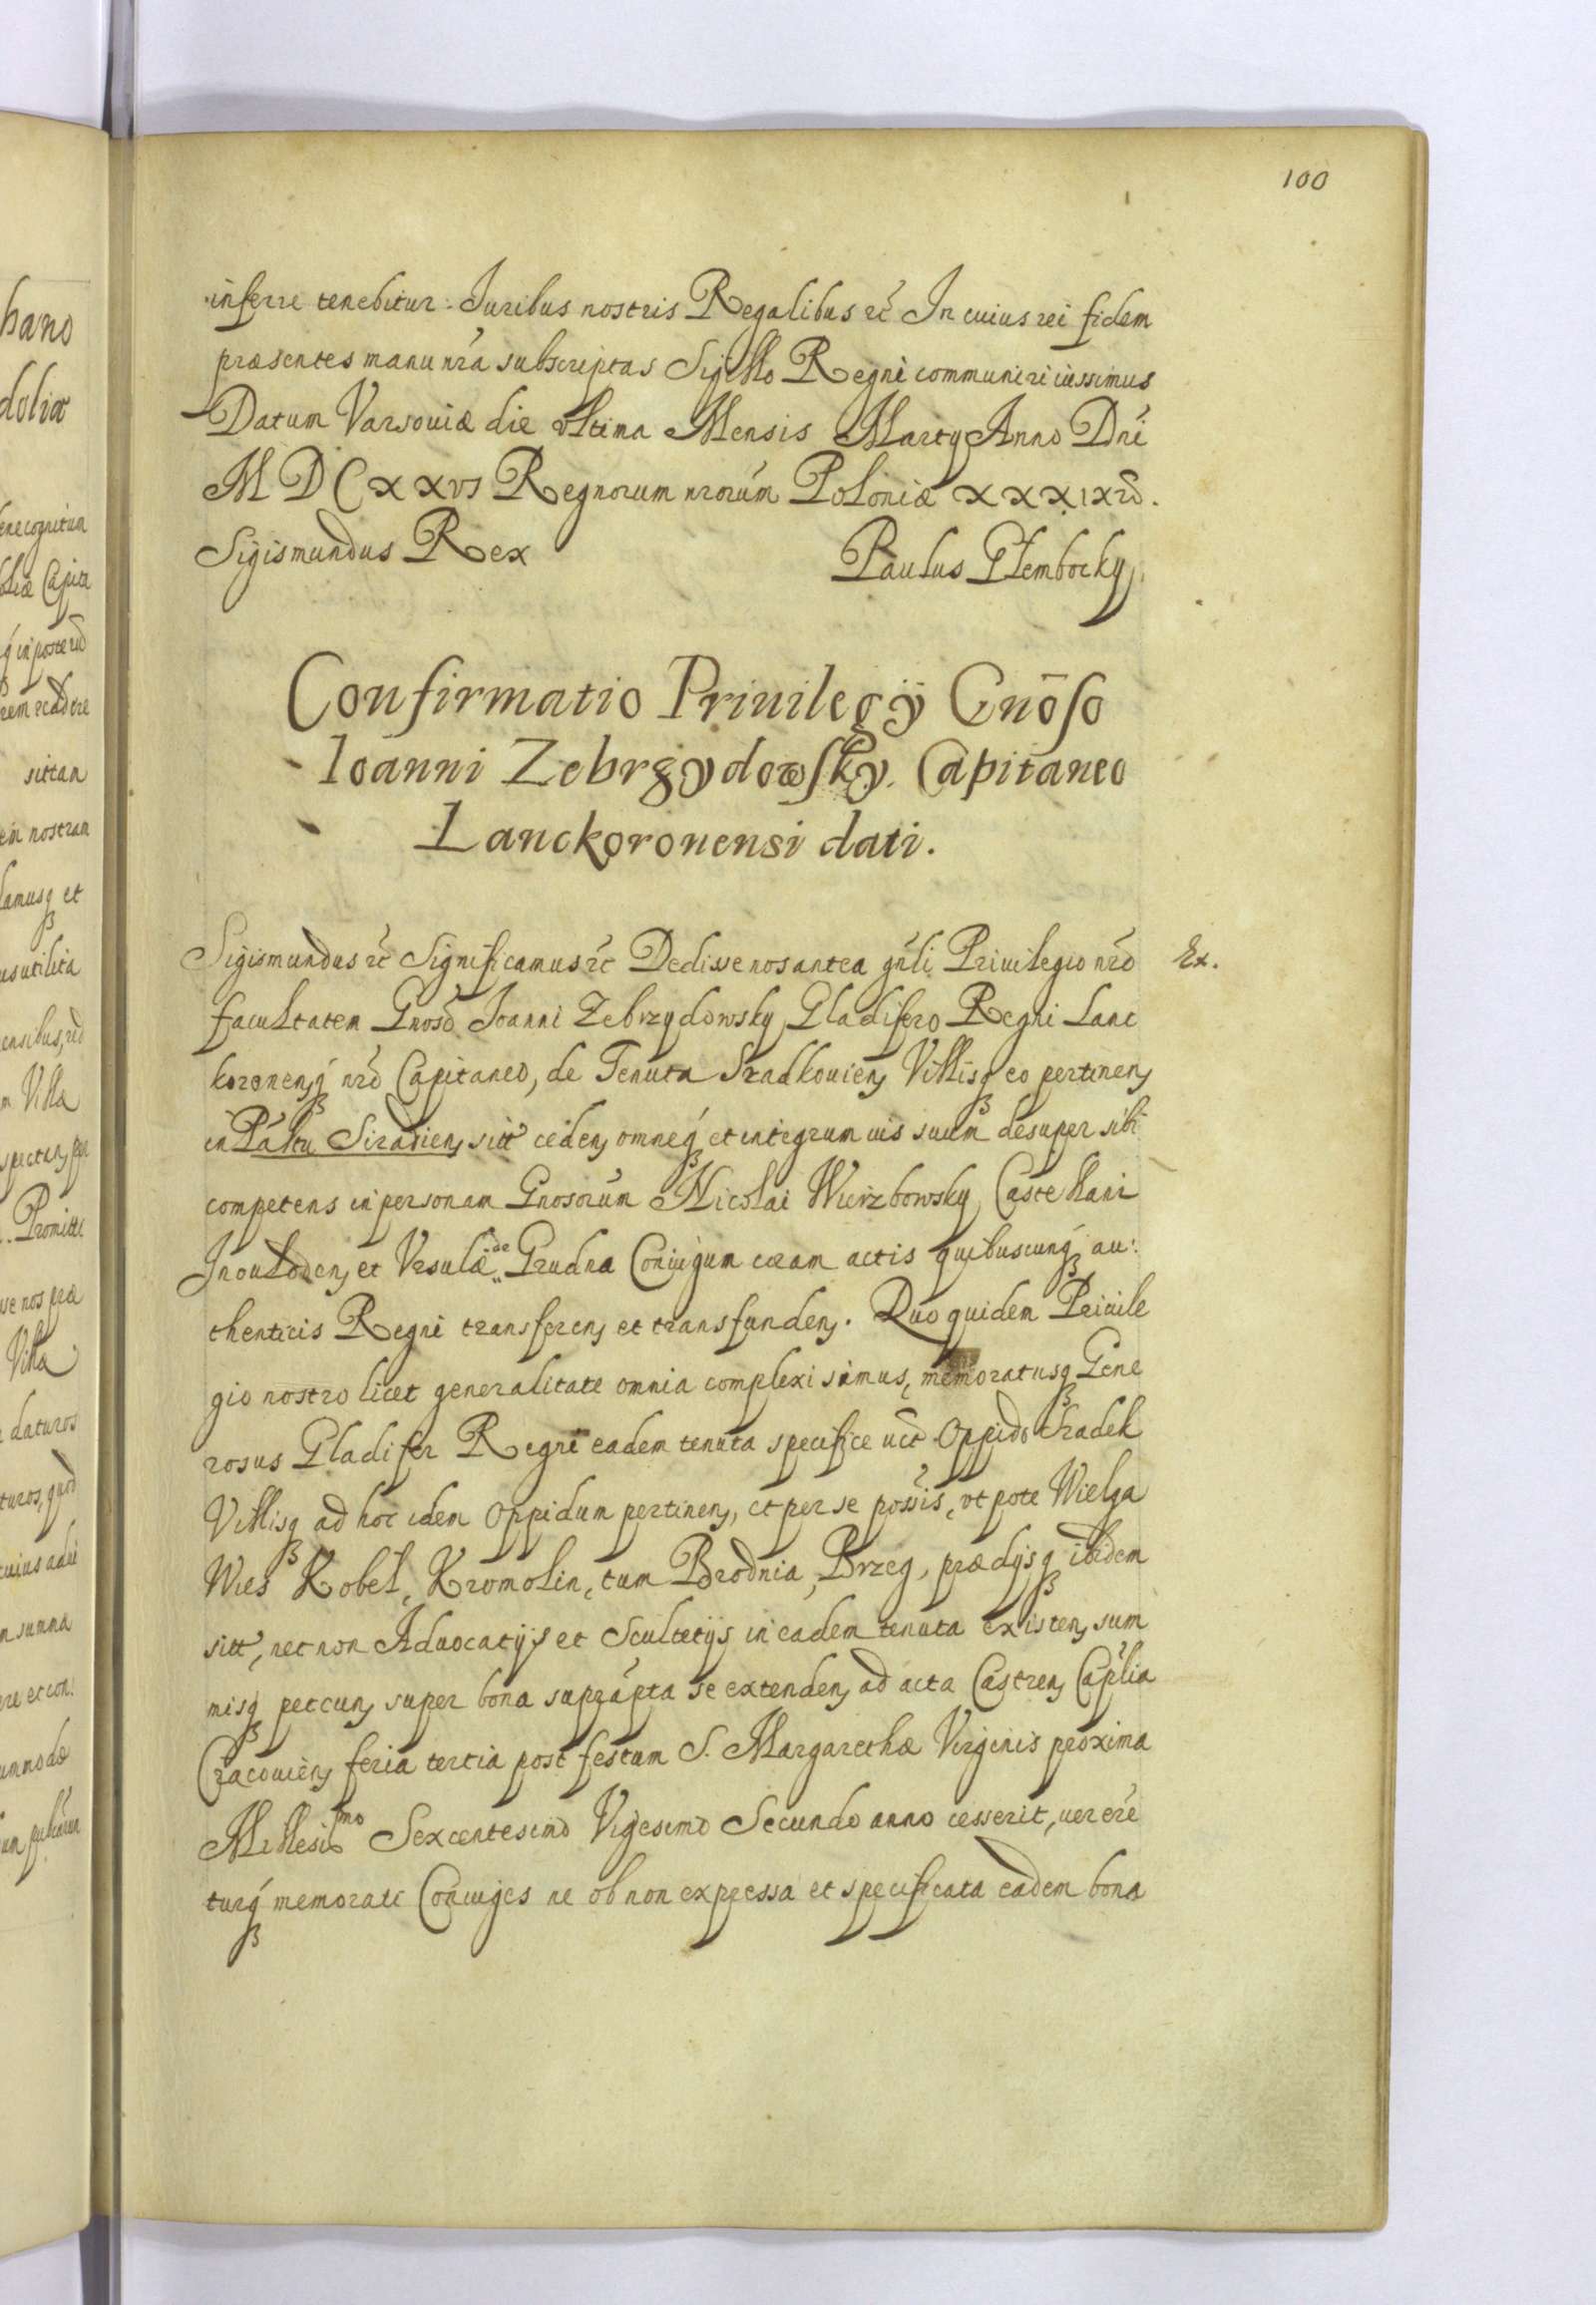 100
inferre tenebitur. Juribus nostris Regalibus &c̃ In cuius rei fidem
præsentes manu nr̃a subscriptas Sigillo Regni communiri iussimus
Datum Varsouiæ die vltima Mensis Martÿ Anno Dnĩ
MDCXXVI Regnorum nrorũm Poloniæ XXXIX
Sigismundus Rex Paulus Głembocky
Confirmatio Priuilegÿ Gnõso
Ioanni Zebrzydowsky. Capitaneo
Lanckoronensi dati.
Sigismundus &c̃ Significamus &c̃ Dedisse nos antea gñli Priuilegio nrõ Ex.
facultatem Gnosõ Joanni Zebrzydowsky Gladifero Regni Lanc
koronensq́ nrõ Capitaneo, de Tenuta Szadkouien, Villisq eo pertinen,
in Palttu Siradien, sitt̃ ceden, omneq́ et integrum ius suum desuper sibi
competens in personam Gnosorũm Nicolai Wierzbowsky Castellani
Inoulođen, et Vrsulæ de Grudna Coniugum coram actis quibuscunq́ au:
thenticis Regni transferen, et transfunden,. Quo quidem Priuile
gio nostro licet generalitate omnia complexi simus, memoratusq Gene
rosus Gladifer Regni eadem tenuta specifice uct̃ Oppido Szadek
Villisq ad hoc idem Oppidum pertinen, et per se possĩs, vt pote Wielga
Wies Kobel, Kromolin, tum Brodnia, Brzeg, prædÿsq ibidem
sitt̃, nec non Aduocatÿs et Scultetÿs in eadem tenuta existen, sum
misq peccun, super bona suprap̃ta se extenden, ad acta Castren, Cap̃lia
Cracouien, feria tertia post festum S. Margarethæ Virginis proxima
Millesimo Sexcentesimo Vigesimo Secundo anno cesserit, uererẽ
turq́ memorati Coniuges ne ob non expressa et specificata eadem bona